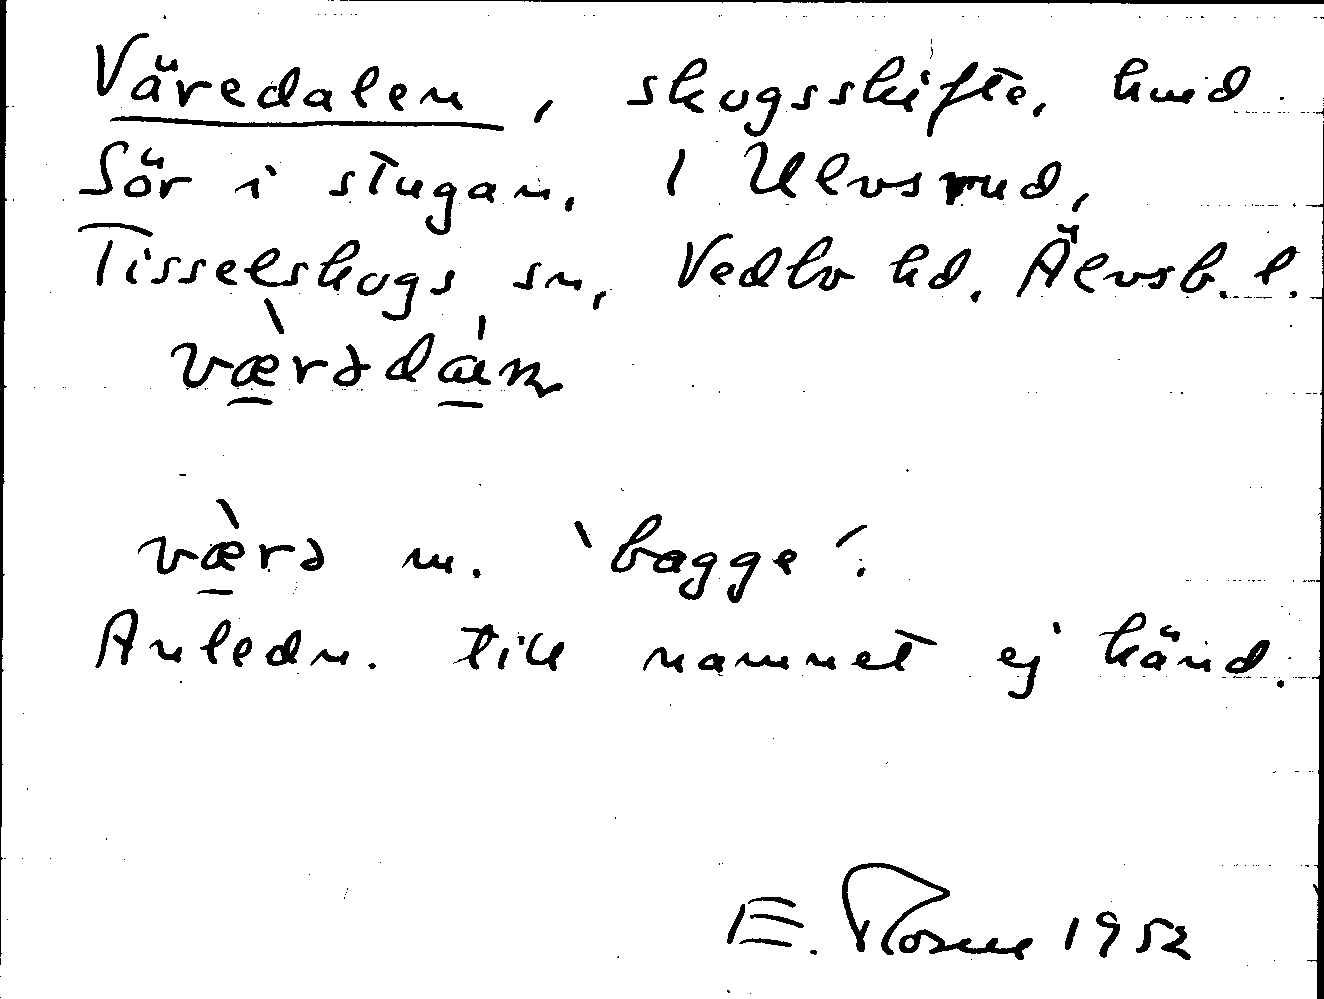 Väredalen, skogsskifte, hmd
Sör i stugan, 1 Ulvsrud,
Tisselskogs sn, Vedbo hd. Älvsb. l.
væ̀rədán
væ̀rə m. `bagge´.
Anledn. till namnet ej känd.
E. 1952